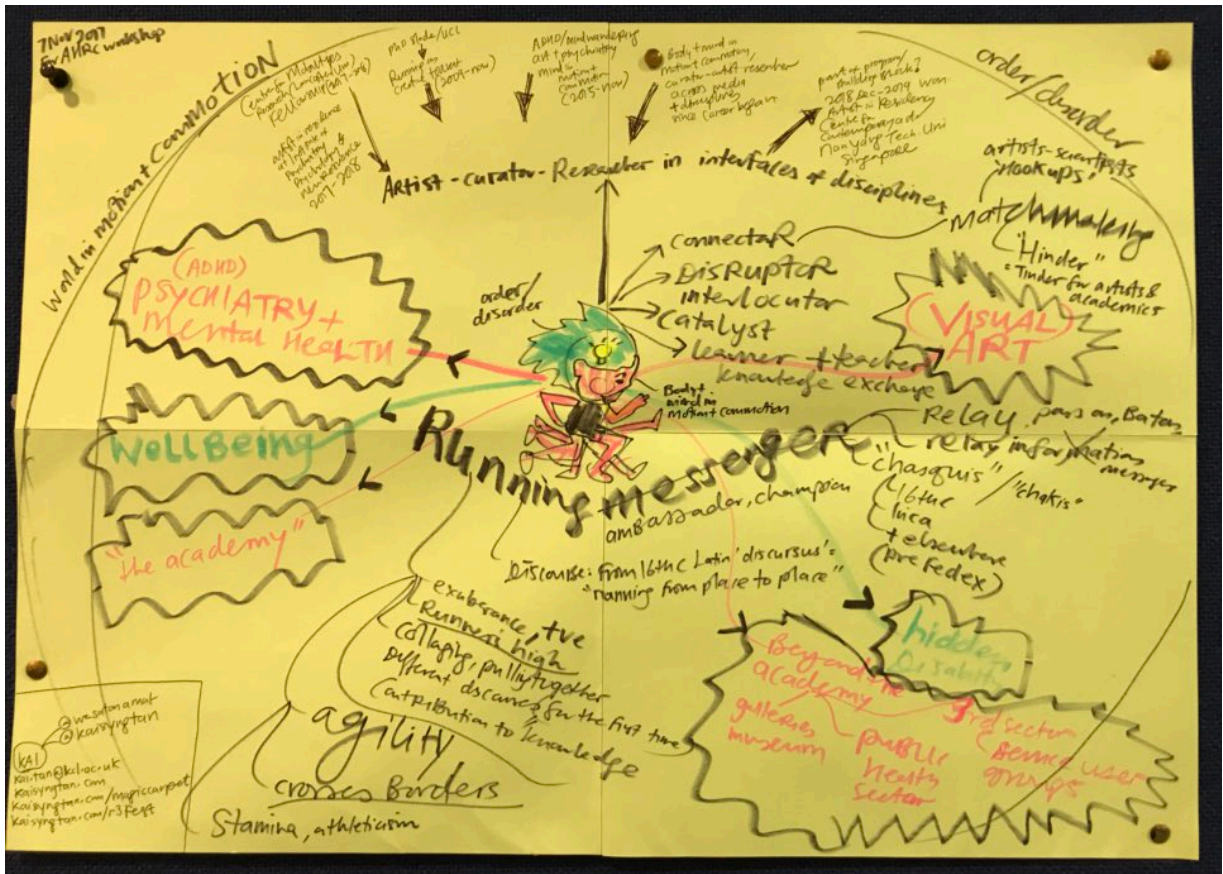 7 Nov 2017
For AHRC workshop
World in motion + Commotion
order/disorder
Fellowship (2017-2018)
artist in residence
at Institute of
Psychiatry
Psychology &
neuroscience
2017-2018
PhD Slade/UCL
Running as
Creative toolkit
(2009-now)
ADHD/mindwandering
art + psychiatry
mind in
motion +
commotion
(2015-now)
Body + mind in
motion + commotion,
curator-artist researcher
across media
+ disciplines
since career began
part of program/
building block?
2018 Dec-2019
Artist in Residency
Centre for
Contemporary art
Nanyang Tech. Uni
Singapore
Artist-curator-Researcher in interfaces of disciplines
artists-scientists
"Hookups"
Matchmaking
"Hinder"
= Tinder for artists &
academics
connectoR
DISRUPTOR
interlocutor
catalyst
learner + teacher
knowledge exchange
order/
disorder
(ADHD)
PSYCHIATRY +
Mental HEALTH
WellBeing
"the academy"
(VISUAL)
ART
Body +
mind in
motion + commotion
Running messenger
ambassador, champion
Relay, pass on, Baton
relay information
messages
"chasquis" / "chakis"
16thc
Inca
+ elsewhere
(pre Fedex)
Discourse: from 16thc Latin 'discursus' =
"running from place to place"
exuberance, +ve
Runners high
collaging, pulling together
Different discourses for the first time
Contribution to "knowledge
agility
crosses Borders
Stamina, athleticism
hidden
Disability
Beyond the
academy
galleries
museum
public
health
sector
3rd sector
service user
groups
@wesatonamat
@kaisyngtan
KAI
kai.tan@kcl.ac.uk
kaisyngtan.com
kaisyngtan.com/magiccarpet
kaisyngtan.com/r3fest